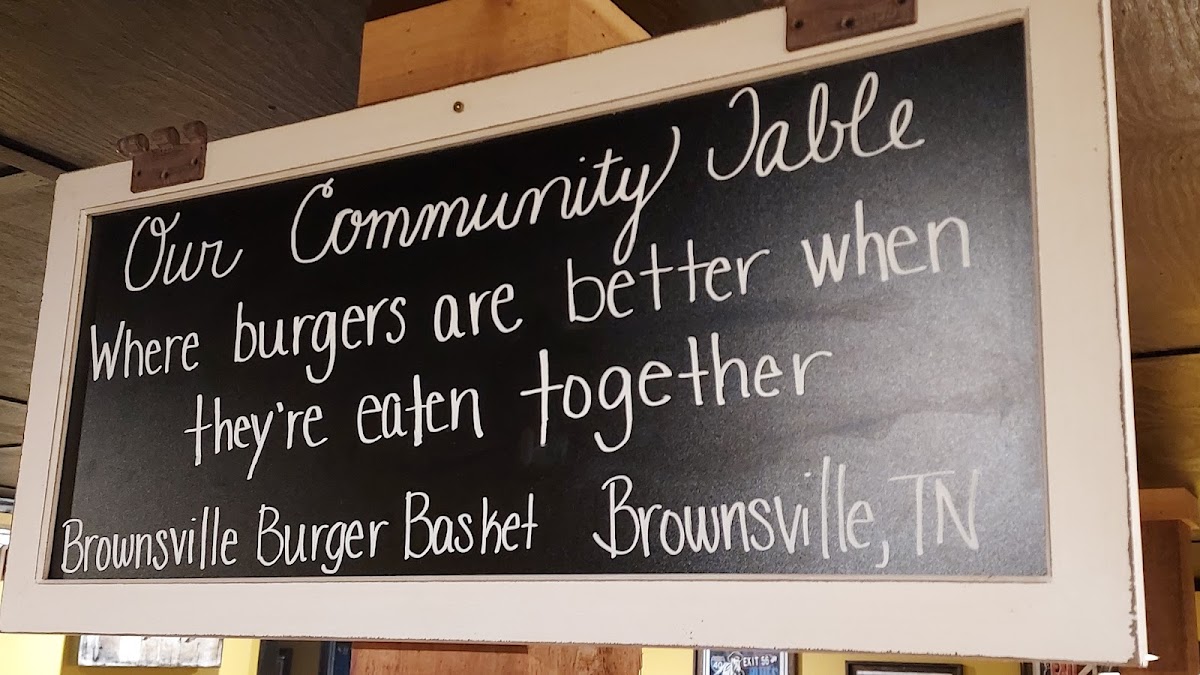 Our Community Table
Where burgers are better when
they're eaten together
Brownsville Burger Basket Brownsville, TN
EXIT 56